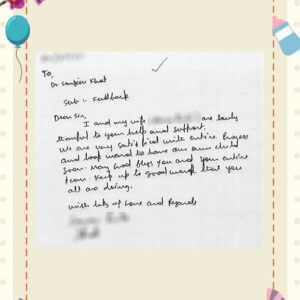 To,
Dr Sanjeev Khot
Sub :- Feedback
Dear Sir,
I and my wife are truly
thankful to your help and support.
We are very satisfied with entire process
and look forward to have our own child
soon. May God bless you and your entire
team. Keep up to good work that you
all are doing.
With lots of love and Regards